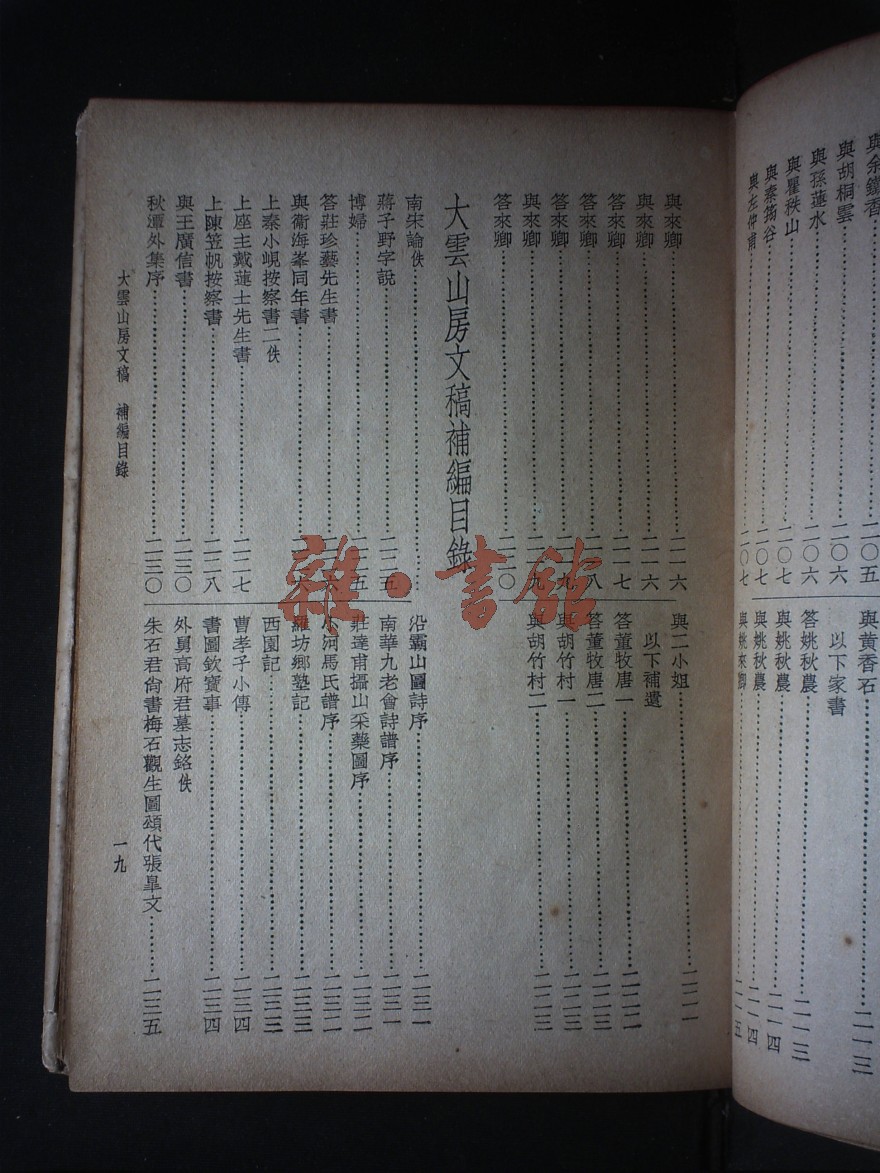 與余鐵香
與胡桐雲……二〇五
與孫蓮水……二〇六
與瞿秩山……二〇六
與秦筠谷……二〇七
與左仲甫……二〇七
與黃香石……二一三
以下家書
答姚秋農……二一三
與姚秋農……二一四
與姚秋農……二一四
與姚來卿
與來卿……二一六
與來卿……二一六
答來卿……二一七
答來卿……二一八
答來卿
與來卿
答來卿……二二〇
與二小姐……二二一
以下補遺
答董牧唐一……二二二
答董牧唐二……二二二
與胡竹村一……二二三
與胡竹村二……二二三
大雲山房文稿補編目錄
南宋論佚
蔣子野字說……二二五
博婦……二二五
答莊珍藝先生書
與衛海峯同年書
上秦小峴按察書二佚
上座主戴蓮士先生書……二二七
上陳笠帆按察書……二二八
與王廣信書……二三〇
秋潭外集序……二三〇
沿霸山圖詩序……二三一
南華九老會詩譜序……二三一
莊達甫攝山采藥圖序……二三二
小河馬氏譜序……二三二
羅坊鄉塾記……二三三
西園記……二三三
曹孝子小傳……二三四
書圖欽寶事……二三四
外舅高府君墓志銘佚
朱石君尙書梅石觀生圖頌代張臯文……二三五
大雲山房文稿　補編目錄
一九
雜·書館